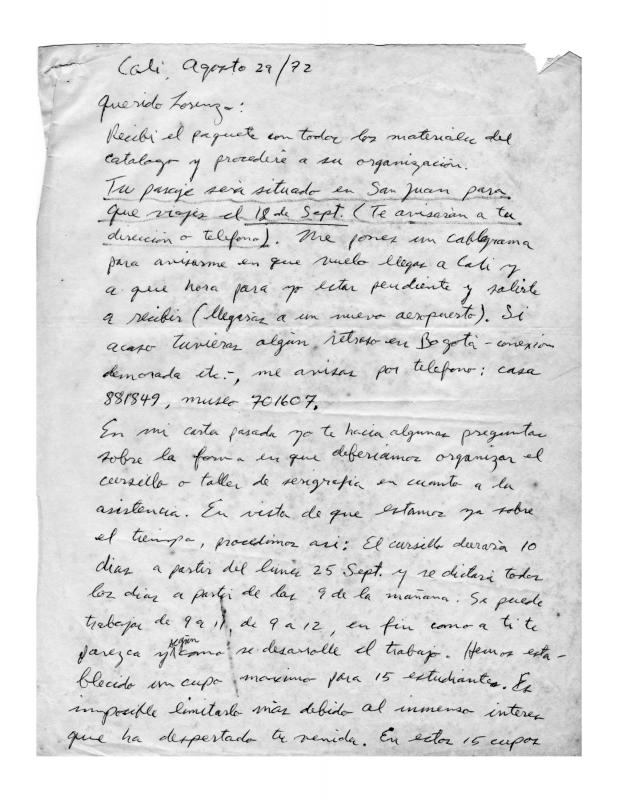 Cali, Agosto 29/72
Querido Lorenzo:
Recibi el paquete con todos los materiales del
catalogo y procederé a su organización.
Tu pasaje será situado en San Juan para
que viajes el 18 de Sept. (Te avisarán a tu
dirección o telefono). Me pones un cablegrama
para avisarme en que vuelo llegas a Cali y
a que hora para yo estar pendiente y salirte
a recibir (llegarás a un nuevo aeropuerto). Si
acaso tuvieras algún retraso en Bogotá - conexión
demorada etc-, me avisas por telefono: casa
881849, museo 701607.
En mi carta pasada yo te hacia algunas preguntas
sobre la forma en que deberiamos organizar el
cursillo o taller de serigrafia en cuanto a la
asistencia. En vista de que estamos ya sobre
el tiempo, procedimos asi: El cursillo duraria 10
dias a partir del lunes 25 Sept. y se dictará todos
los dias a partir de las 9 de la mañana. Se puede
trabajar de 9 a 11, de 9 a 12, en fin como a ti te
parezca y según como se desarrolle el trabajo. Hemos esta-
blecido un cupo maximo para 15 estudiantes. Es
imposible limitarlo más debido al inmenso interes
que ha despertado tu venida. En estos 15 cupos